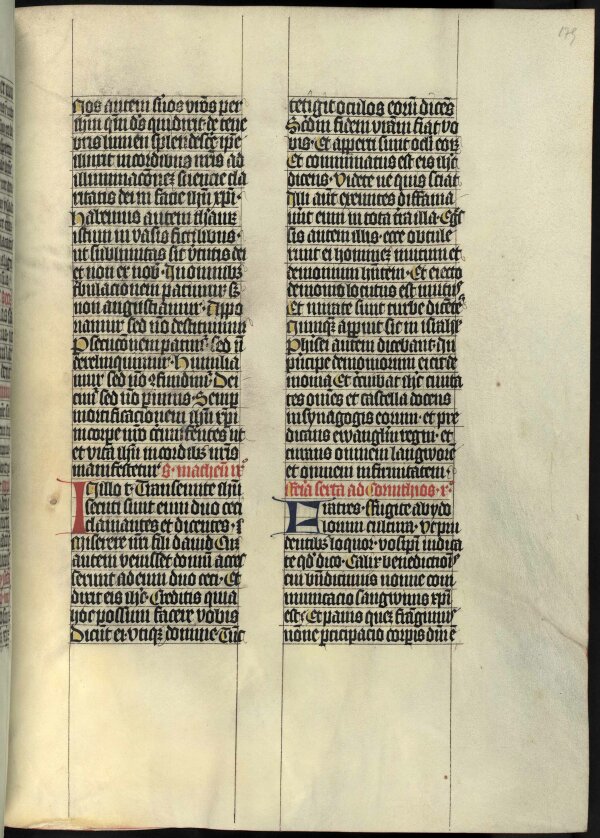 179
nos autem suos vros per
ihm qm ds qui dixit de tene
bris lumen splendescere ipse
illuxit in cordibus nris ad
illuminacōnez sciencie cla
ritatis dei in facie ihu xpi
Habemus autem thesaur
istum in vasis fictilibus
ut sublimitas sit virtutis dei
et non ex nob In omnibz
tribulacionem patimur sz
non angustiamur Appo
namur sed nō destituimur
Psecucionem patimur sed nō
derelinquimur Humilia
mur sed nō confundimur Dei
cimur sed nō perimus Semp
mortificacionem ihu xpi
in corpore nro circumferentes ut
et vita ihu in cordibus nris
manifestetur S matheū ix
In illo t Transeunte ihu
secuti sunt eum duo ceci
clamantes et dicentes
Miserere nri fili dauid Cum
autem venisset domum acces
serunt ad eum duo ceci Et
dixit eis ihc Creditis quia
hoc possum facere vobis
Dicunt ei utiqz domine Tūc
tetigit oculos eorum dicens
Scdm fidem vram fiat vo
bis Et apperti sunt oculi eorz
Et comminatus est eis ihc
dicens Videte ne quis sciat
Illi aut exeuntes diffama
uerunt eum in tota terra illa Egres
sis autem illis ecce obtule
runt ei hominez mutum et
demonium hntem Et eiecto
demonio locutus est mutus
Et mirate sunt turbe dicentes
Nunquam apparuit sic in israhel
Pharisei autem dicebant In
principe demoniorum eicit de
monia Et circuibat ihc ciuita
tes omnes et castella docens
in synagogis eorum et pre
dicans ewangelium regni et
curans omnem langworem
et omnem infirmitatem
feria sexta ad Corinthios x
Fratres Fugite ab ydo
lorum cultura Ut pru
dentibus loquor vos ipsi iudica
te qd dico Calix benedictionis
cui bndicimus nonne com
municacio sangwinis xpi
est Et panis quez frangimus
nonne pticipacio corpis dni ē